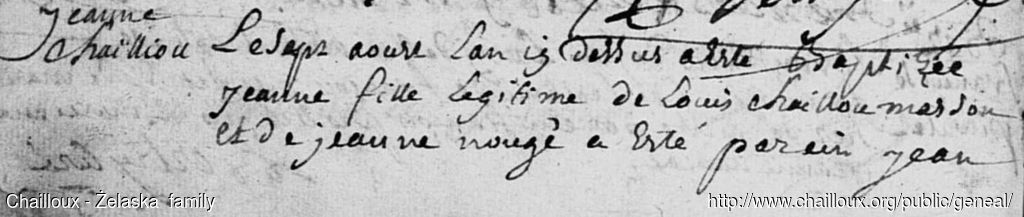 Jeanne
Chailliou
Le sept aoust lan cy dessus a este Baptizee
Jeanne fille legitime de Louis chaillou masson
Et de jeanne nougé a Esté parain jean
Chailloux - Żelaska family
http://www.chailloux.org/public/geneal/